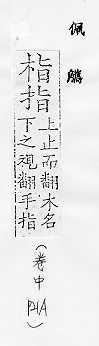 佩觿
栺指
上止而翻木名
下之視翻手指
(卷中